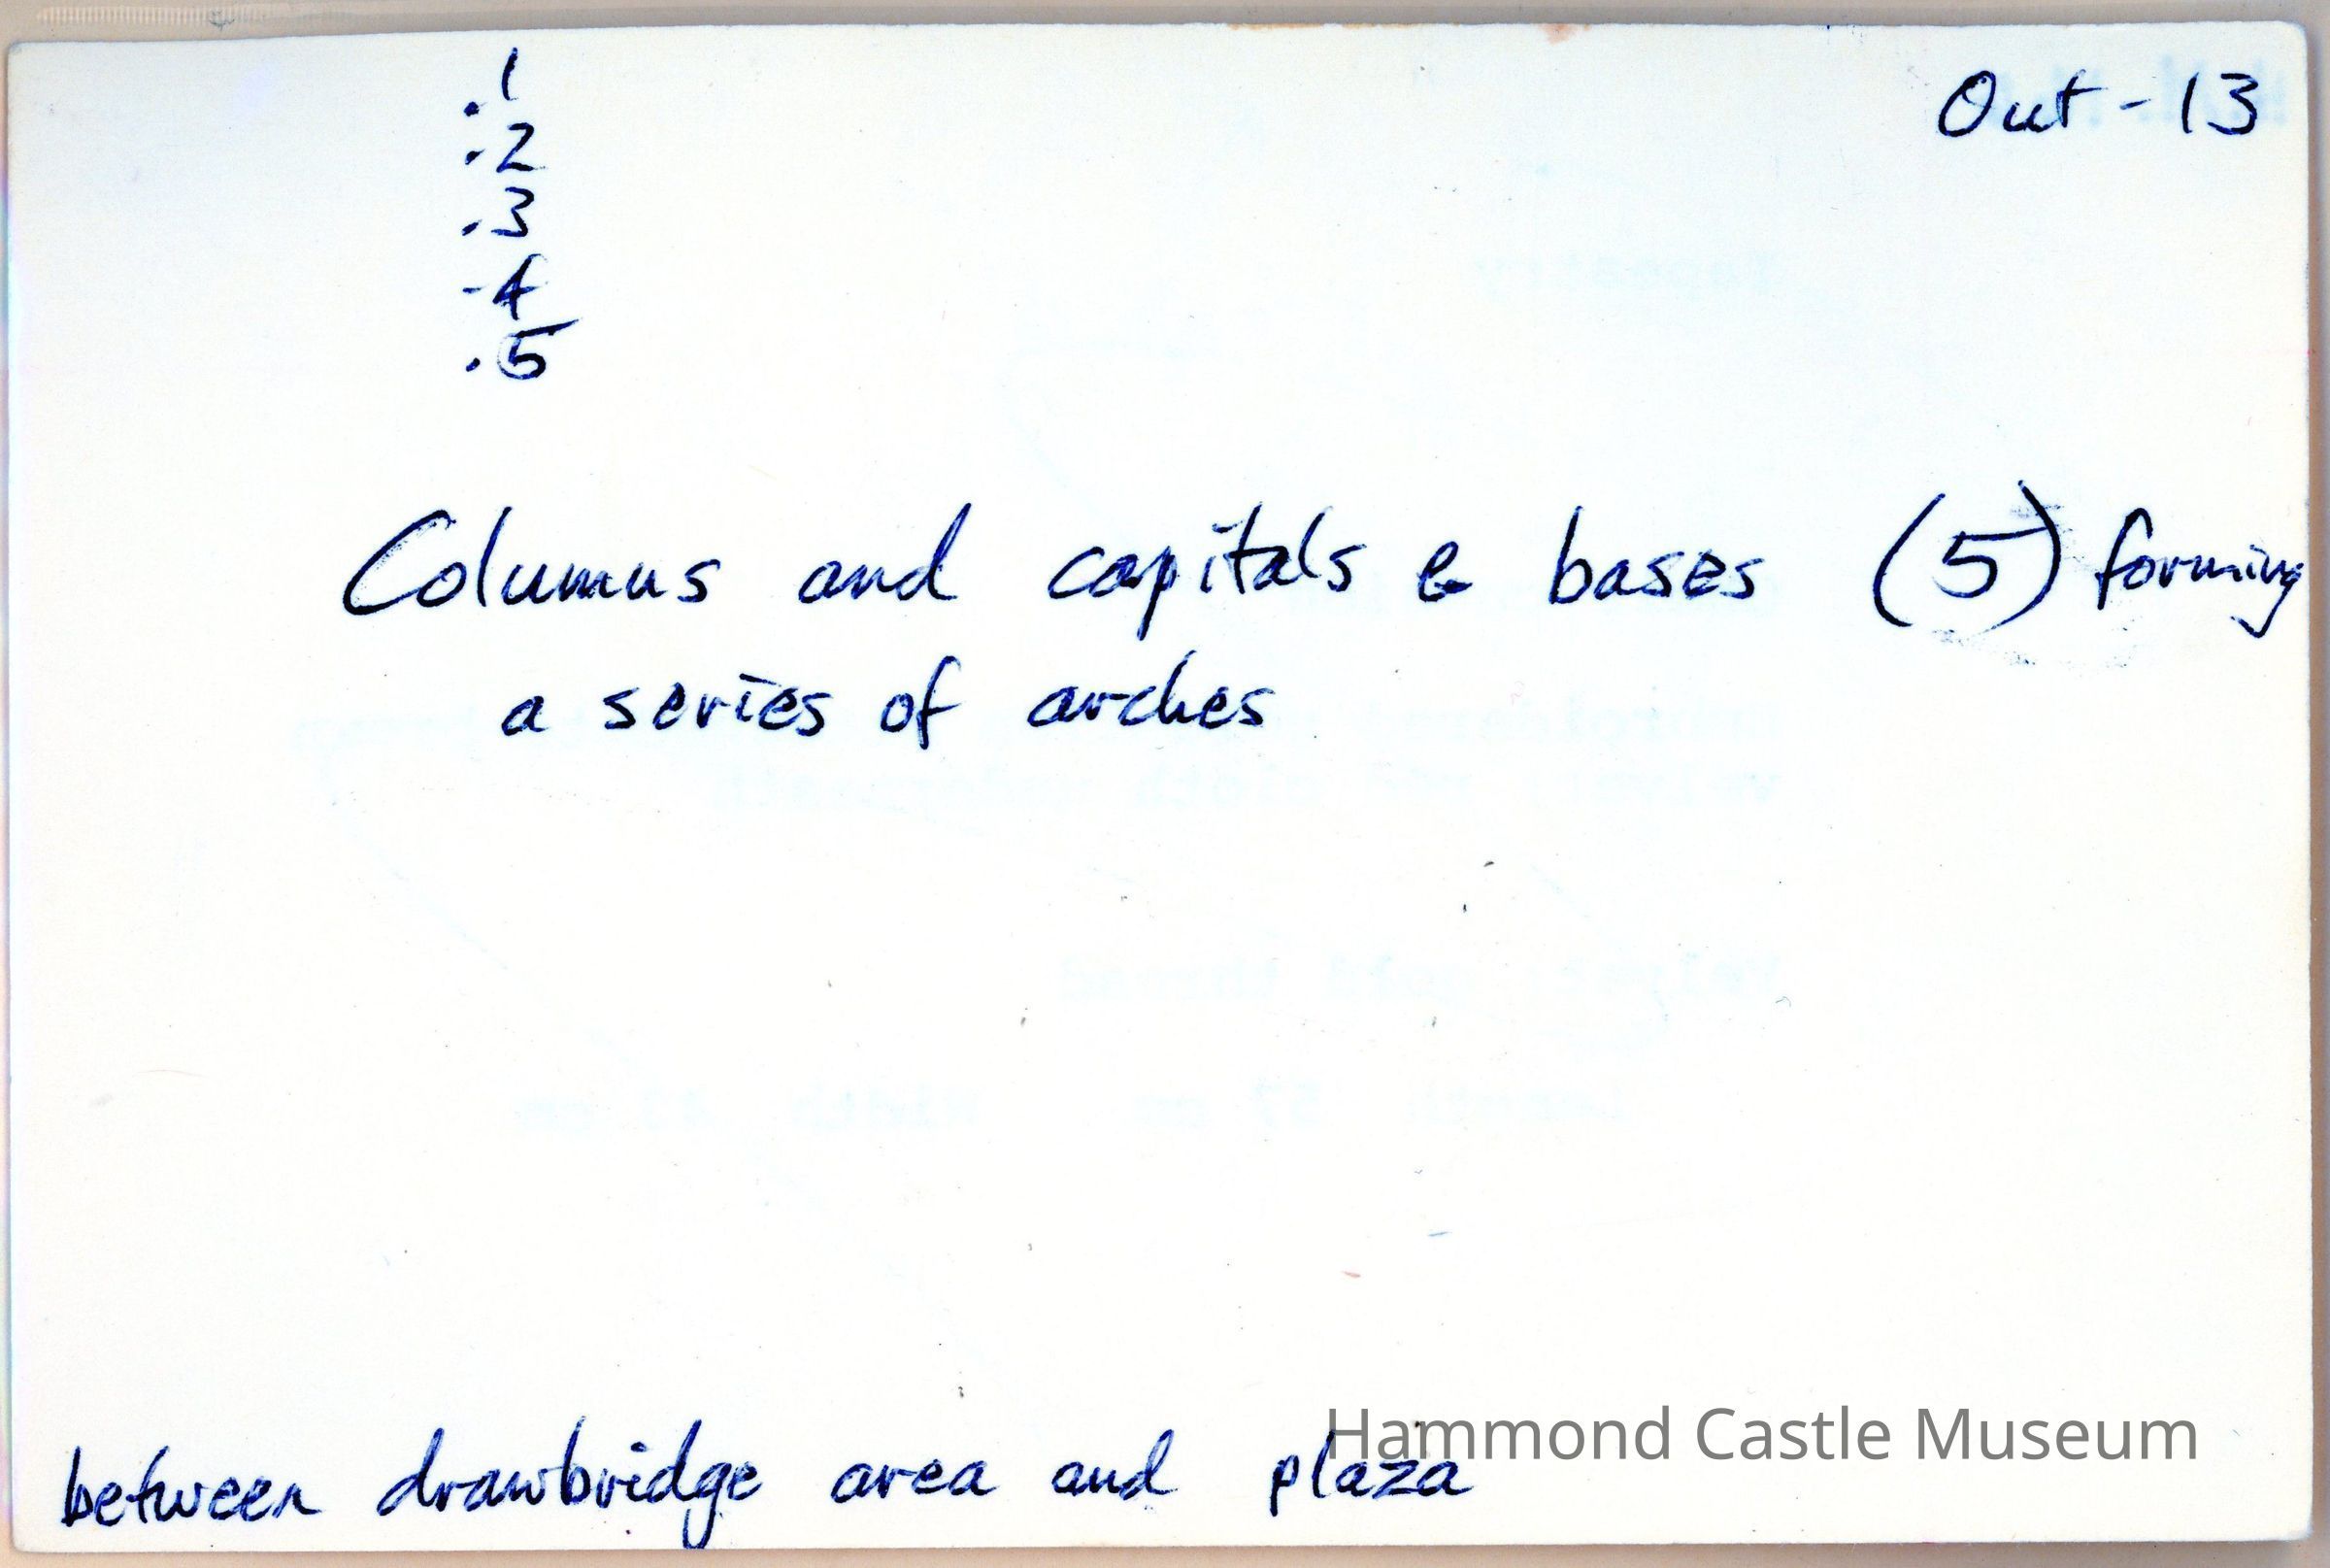 Out-13
.1
.2
.3
.4
.5
Columns and capitals & bases (5) forming
a series of arches
between drawbridge area and plaza
Hammond Castle Museum